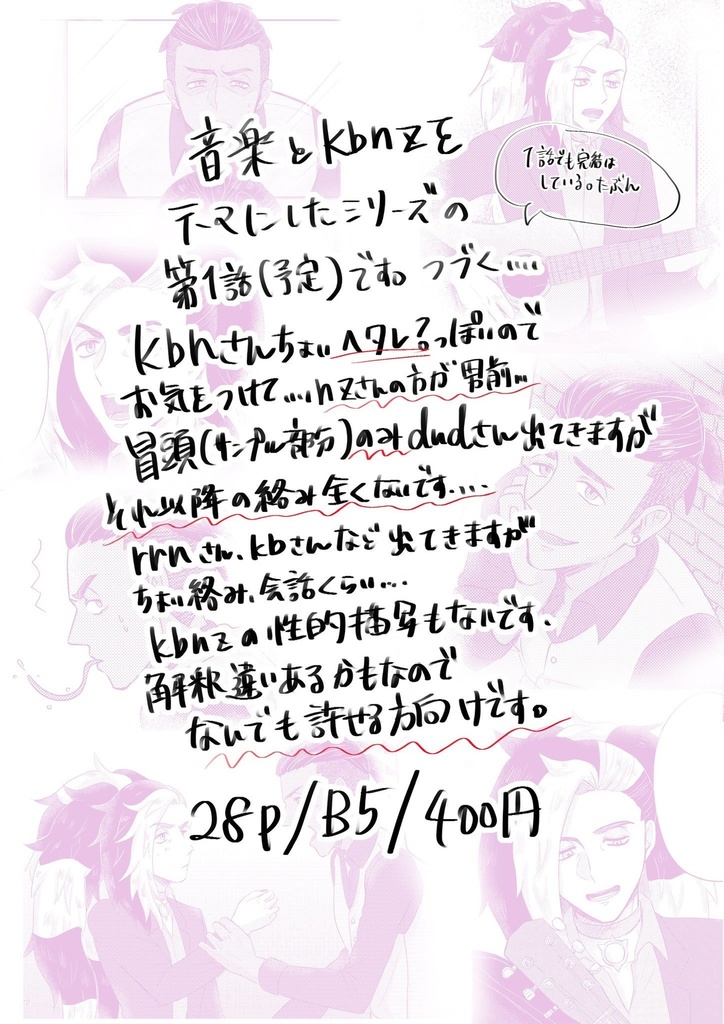 音楽とkbnzを
テーマにしたシリーズの
第1話(予定)です。つづく....
1話でも完結は
している。たぶん
kbnさんちょいヘタレ?っぽいので
お気をつけて....nzさんの方が男前...
冒頭(サンプル部分)のみdudさん出てきますが
それ以降の絡み全くないです....
rrnさん、kbさんなど出てきますが
ちょい絡み、会話くらい...
kbnzの性的描写もないです、
解釈違いあるかもなので
なんでも許せる方向けです。
28p/B5/400円